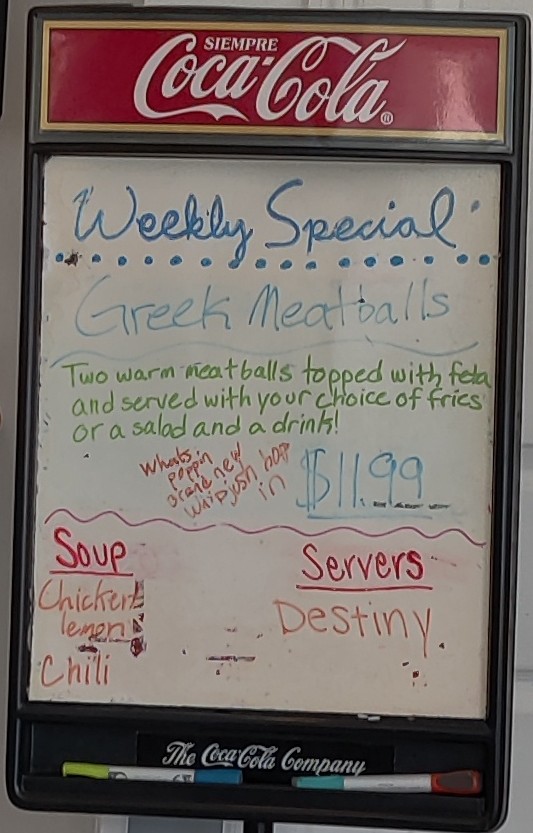 SIEMPRE
Coca-Cola®
Weekly Special
Greek Meatballs
Two warm meatballs topped with feta
and served with your choice of fries
or a salad and a drink!
Whats
poppin
brand new
whip just hop
in
$11.99
Soup
Chicken
lemon
Chili
Servers
Destiny
The Coca-Cola Company